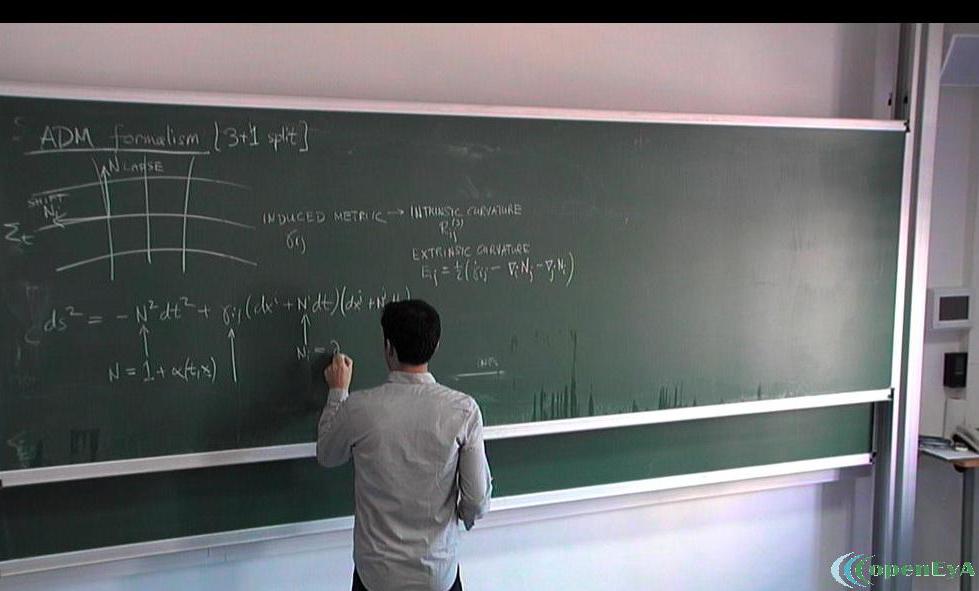 ADM formalism [3+1 split]
N LAPSE
SHIFT
Nⁱ
Σt
INDUCED METRIC → INTRINSIC CURVATURE
γij
Rij⁽³⁾
EXTRINSIC CURVATURE
Eij = ½(γ̇ij − ∇iNj − ∇jNi)
ds² = −N²dt² + γij(dxⁱ + Nⁱdt)(dxʲ + Nʲdt)
N = 1 + α(t,x)
Ni =
openEyA